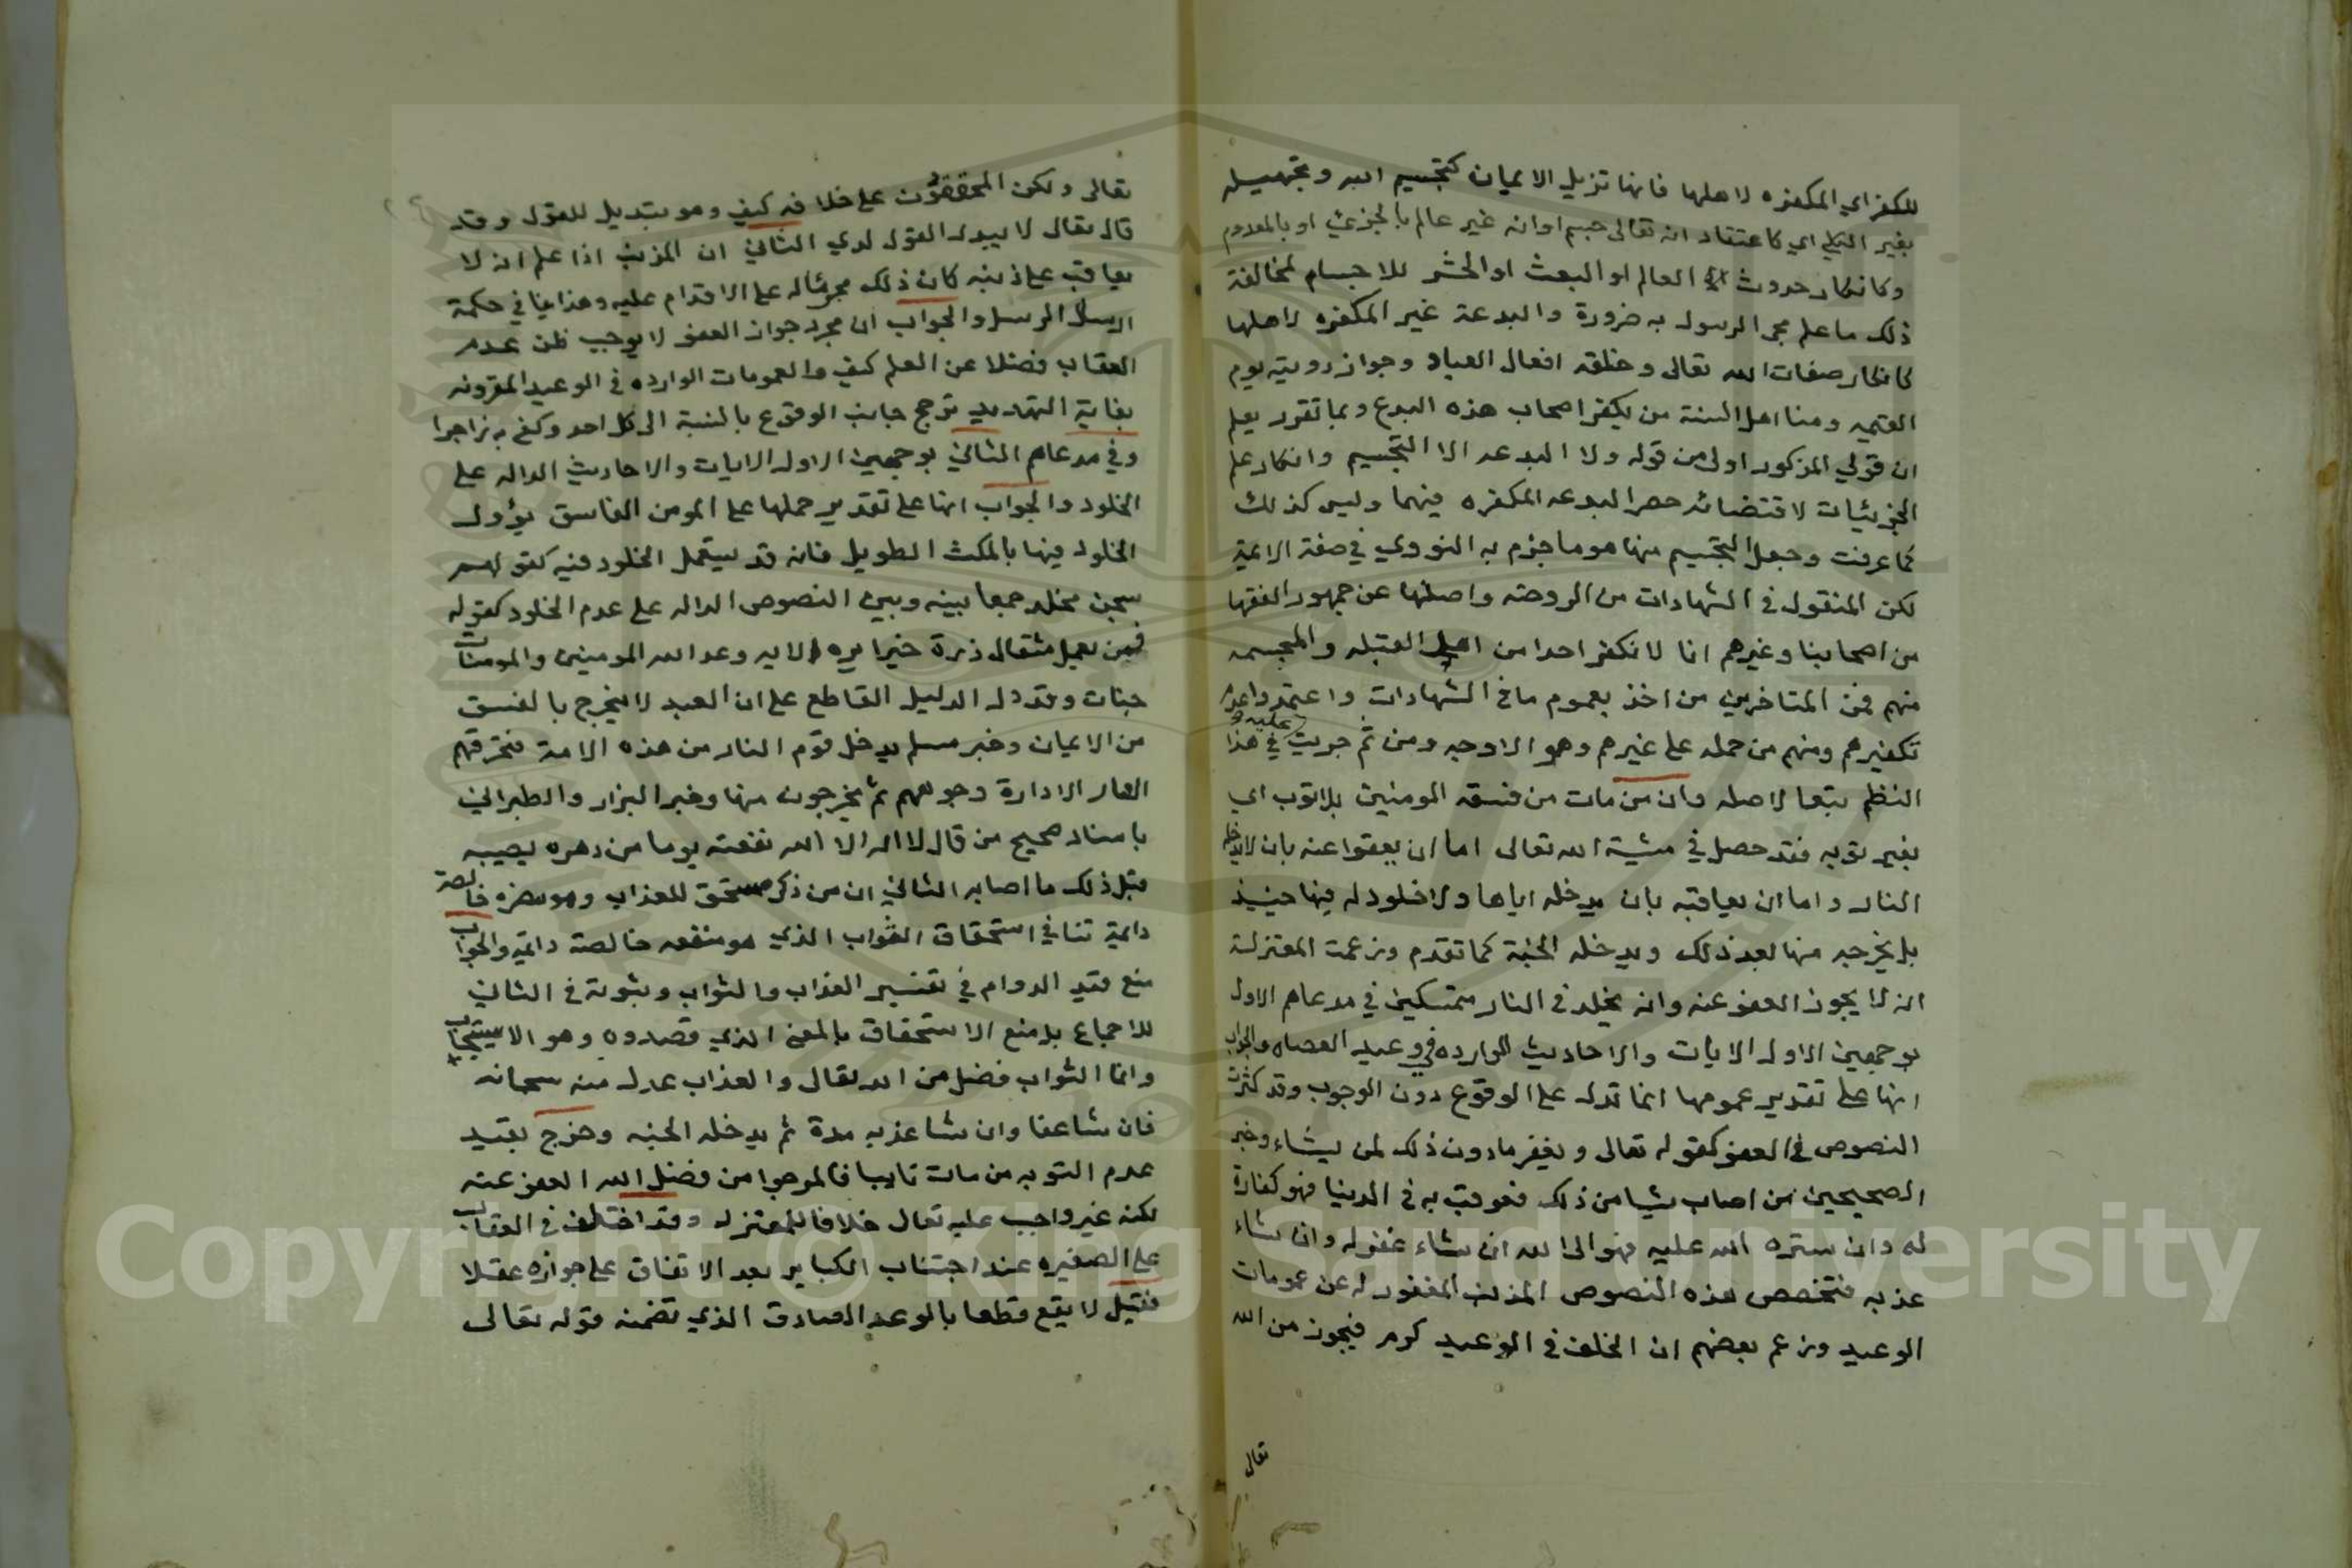 للكفر اي المكفره لاهلها فانها تزيل الايمان كتجسيم الله وتجهيله
بغير الكلي اي كاعتقاد انه تعالى جسم او انه غير عالم بالجزئي او بالمعدوم
وكانكار حدوث العالم او البعث او الحشر للاجسام لمخالفة
ذلك ما علم مجي الرسول به ضرورة والبدعة غير المكفره لاهلها
كانكار صفات الله تعالى وخلقه افعال العباد وجواز رويته يوم
القيمه ومنا اهل السنة من يكفر اصحاب هذه البدع وبما تقرر يعلم
ان قولي المذكور اولى من قوله ولا البدعه الا التجسيم وانكار علم
الجزئيات لاقتضائه حصر البدعه المكفره فيهما وليس كذلك
كما عرفت وجعل التجسيم منها هو ما جزم به النووي في صفة الايمة
لكن المنقول في الشهادات من الروضه واصلها عن جمهور الفقها
من اصحابنا وغيرهم انا لا نكفر احدا من اهل القبله والمجسمه
منهم فمن المتاخرين من اخذ بعموم ما في الشهادات واعتمد واعدم
تكفيرهم ومنهم من حمله على غيرهم وهو الاوجه ومن ثم جريت عليه في هذا
النظم تبعا لاصله وان من مات من فسقه المومنين بلا توب اي
بغير توبه فقد حصل في مشية الله تعالى اما ان يعفوا عنه بان لا يدخله
النار واما ان يعاقبه بان يدخله اياها ولا خلود له فيها حينيذ
بل يخرجه منها بعد ذلك ويدخله الجنة كما تقدم وزعمت المعتزلة
انه لا يجوز العفو عنه وانه يخلد في النار متمسكين في مدعاهم الاول
بوجهين الاول الايات والاحاديث الوارده في وعيد العصاه والجواب
انها على تقدير عمومها انما تدل على الوقوع دون الوجوب وقد كثرت
النصوص في العفو كقوله تعالى ويغفر ما دون ذلك لمن يشاء وخبر
الصحيحين من اصاب شيا من ذلك فعوقب به في الدنيا فهو كفارة
له وان ستره الله عليه فهو الى الله ان شاء غفر له وان شاء
عذبه فتخصص هذه النصوص المذنب المغفور له عن عمومات
الوعيد وزعم بعضهم ان الخلف في الوعيد كرم فيجوز من الله
تعالى
تعالى ولكن المحققون على خلافه كيف وهو تبديل للقول وقد
قال تعالى لا يبدل القول لدي الثاني ان المذنب اذا علم انه لا
يعاقب على ذنبه كان ذلك مجرئا له على الاقدام عليه وهذا ينافي حكمة
ارسال الرسل والجواب ان مجرد جواز العفو لا يوجب ظن عدم
العقاب فضلا عن العلم كيف والعمومات الوارده في الوعيد المقرونه
بغاية التهديد ترجح جانب الوقوع بالنسبة الى كل احد وكفى به زاجرا
وفي مدعاهم الثاني بوجهين الاول الايات والاحاديث الداله على
الخلود والجواب انها على تقدير حملها على المومن الفاسق يؤول
الخلود فيها بالمكث الطويل فانه قد يستعمل الخلود فيه كقولهم
سجن مخلد جمعا بينه وبين النصوص الداله على عدم الخلود كقوله
فمن يعمل مثقال ذرة خيرا يره الايه وعد الله المومنين والمومنات
جنات وقد دل الدليل القاطع على ان العبد لا يخرج بالفسق
من الايمان وخبر مسلم يدخل قوم النار من هذه الامة فتحرقهم
النار الا دارة وجوههم ثم يخرجون منها وخبر البزار والطبراني
باسناد صحيح من قال لا اله الا الله نفعته يوما من دهره يصيبه
قبل ذلك ما اصابه الثاني ان من ذكر مستحق للعذاب وهو مضره خالصة
دايمة تنافي استحقاق الثواب الذي هو منفعه خالصة دايمة والجواب
منع قيد الدوام في تفسير العذاب والثواب وثبوته في الثاني
للاجماع بل منع الاستحقاق بالمعنى الذي قصدوه وهو الاستيجاب
وانما الثواب فضل من الله تعالى والعذاب عدل منه سبحانه
فان شا عفا وان شا عذبه مدة ثم يدخله الجنه وخرج بقيد
عدم التوبه من مات تايبا فالمرجوا من فضل الله العفو عنه
لكنه غير واجب عليه تعالى خلافا للمعتزله وقد اختلف في العقاب
على الصغيره عند اجتناب الكباير بعد الاتفاق على جوازه عقلا
فقيل لا يقع قطعا بالوعد الصادق الذي تضمنه قوله تعالى
Copyright © King Saud University